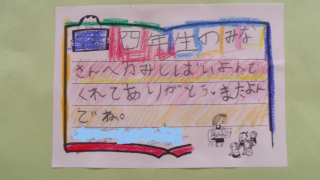 四年生のみな
さんへかみしばいよんで
くれてありがとう。またよん
でね。